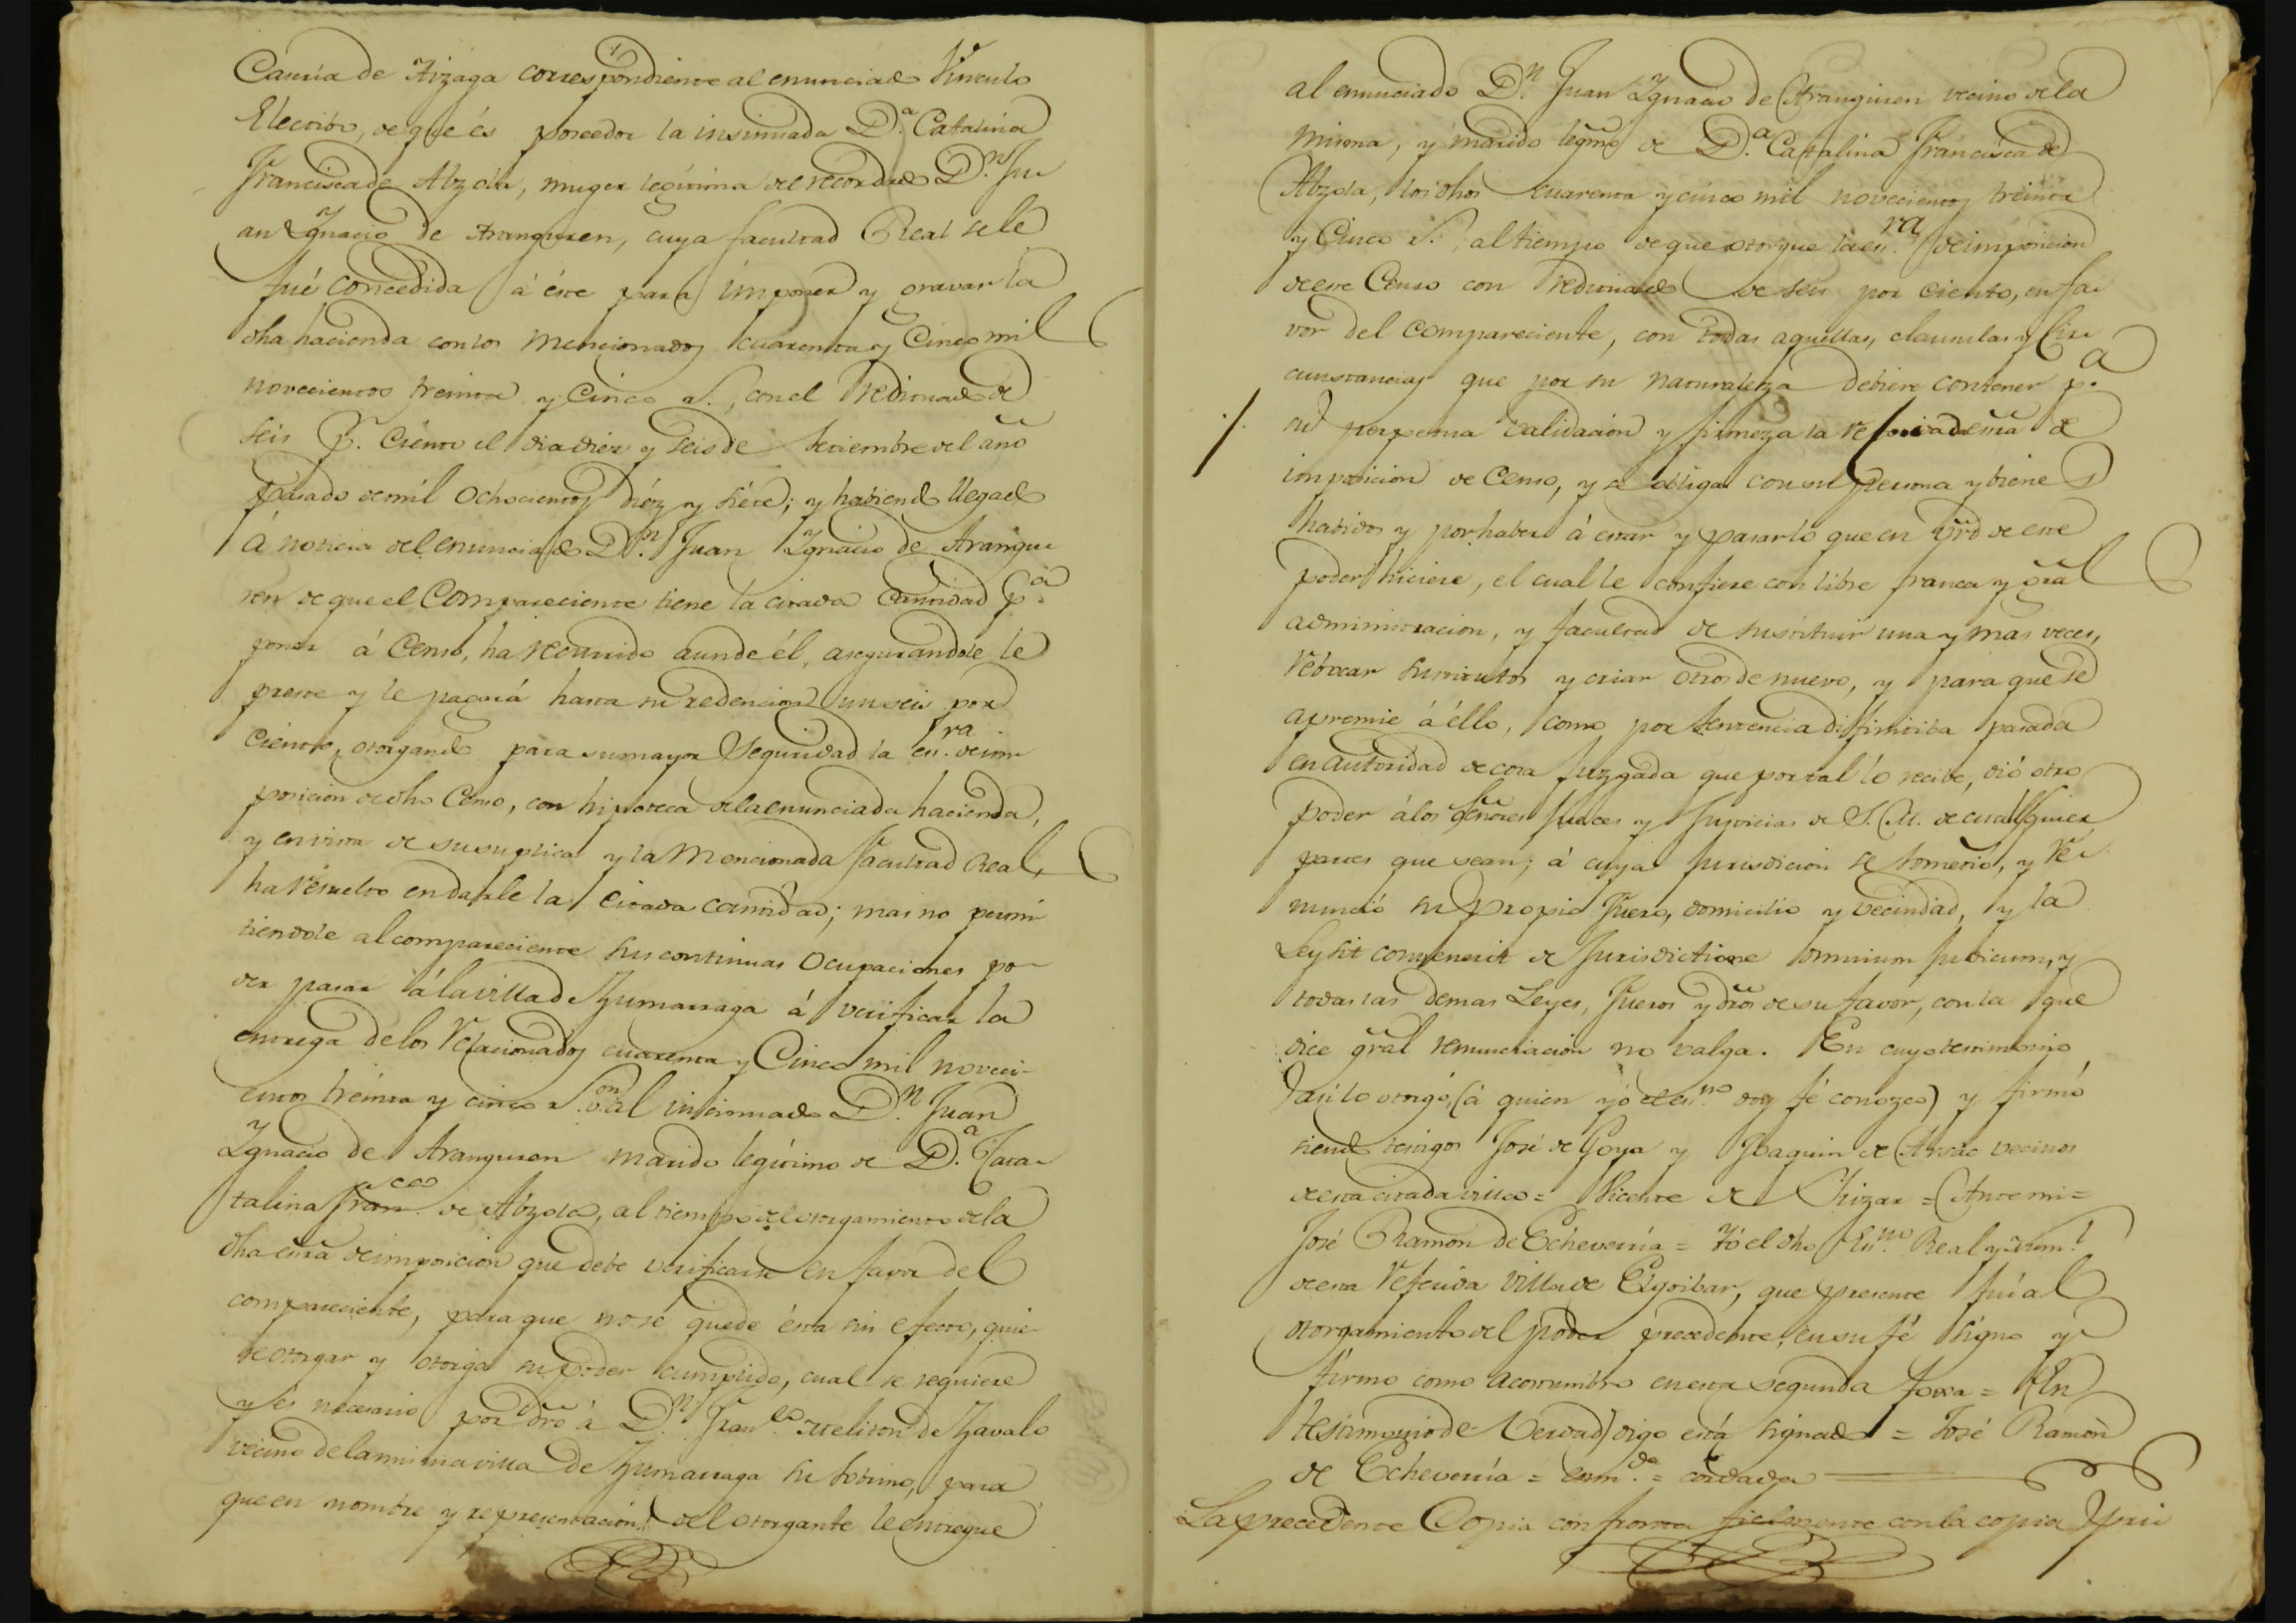 Casería de Aizaga correspondiente al enunciado Vinculo
Elección, de que és poseedor la insinuada D.ª Catalina
Francisca de Abzola, muger legitima del recordado D.n Ju-
an Ygnacio de Aranguren, cuya facultad Real se le
fué concedida á éste para imponer y gravar la
dha hacienda con los mencionados cuarenta y Cinco mil
novecientos treinta y Cinco r.s, con el redituado de
seis p.r Ciento el dia diez y seis de Setiembre del año
pasado de mil Ochocientos diéz y siéte; y habiendo llegado
á noticia del enunciado D.n Juan Ygnacio de Arangu-
ren de que el Compareciente tiene la citada Cantidad p.a
poner á Censo, ha recurrido aunde él, asegurandole le
preste y le pagará hasta su redencion un seis por
Ciento, otorgando para su mayor Seguridad la es.ra de im-
posicion de dho Censo, con hipoteca de la enunciada hacienda,
y en vista de su suplica y la Mencionada facultad Real,
ha resuelto en darle la citada cantidad; mas no permi-
tiendole al compareciente sus continuas Ocupaciones po-
der pasar á la villa de Zumarraga á verificar la
entrega de los relacionados cuarenta y Cinco mil noveci-
entos tréinta y cinco r.s v.on al insinuado D.n Juan
Ygnacio de Aranguren marido legitimo de D.ª Cata-
talina Fran.ca de Abzola, al tiempo del otorgamiento de la
dha esra de imposicion que debe verificarse en favor del
compareciente, para que no sé quede ésta sin efecto, quie-
re otorgar y otorga su poder cumplido, cual se requiere
y és necesario por dro á D.n Fran.co Meliton de Zavalo
vecino de la misma villa de Zumarraga su sobrino, para
que en nombre y representacion del otorgante le entregue
al enunciado D.n Juan Ygnacio de Aranguren vecino de la
misma, y marido legmo de D.ª Catalina Francisca de
Abzola, los dhos cuarenta y cinco mil novecientos treinta
y Cinco r.s, al tiempo de que otorgue la es.ra de imposicion
de este Censo con redituado de seis por ciento, en fa-
vor del compareciente, con todas aquellas, clausulas y Cir-
cunstancias que por su naturaleza debiere contener p.a
su perpetua validacion y firmeza la referida esra de
imposicion de Censo, y se obliga con su persona y bienes
habidos y por haber á estar y pasar lo que en vrd de este
poder hiciere, el cual le confiere con libre franca y gral
administracion, y facultad de sustituir una y mas veces,
revocar sustitutos y criar otros de nuevo, y para que se
apremie á éllo, como por Sentencia difinitiba pasada
en autoridad de cosa juzgada que por tal lo recibe, dió otro
poder á los Señores Jueces y Justicias de S. M. de cualesquiera
partes que sean; á cuya Jurisdicion se sometió, y re-
nunció su propio Fuero, domicilio y vecindad, y la
Ley sit convenerit de Jurisdictione omnium Judicum, y
todas las demas Leyes, Fueros y dros de su favor, con la que
dice gral renunciacion no valga. En cuyo testimonio
asi lo otorgó, (á quien yó el es.no doy fé conozco) y firmó
siendo testigos José de Goya y Joaquin de vecinos
de esta citada villa = Vicente de = Ante mi =
José Ramon de Echeverria = Yó el dho Es.no Real y Num.l
de esta referida Villa de Elgoibar, que presente fui al
otorgamiento del poder precedente, en su fé signo y
firmo como acostumbro en esta segunda foxa = En
testimonio de Verdad) digo está signado = José Ramon
de Echeverria = enm.do =
La precedente Copia confronta fielmente con la copia pri-